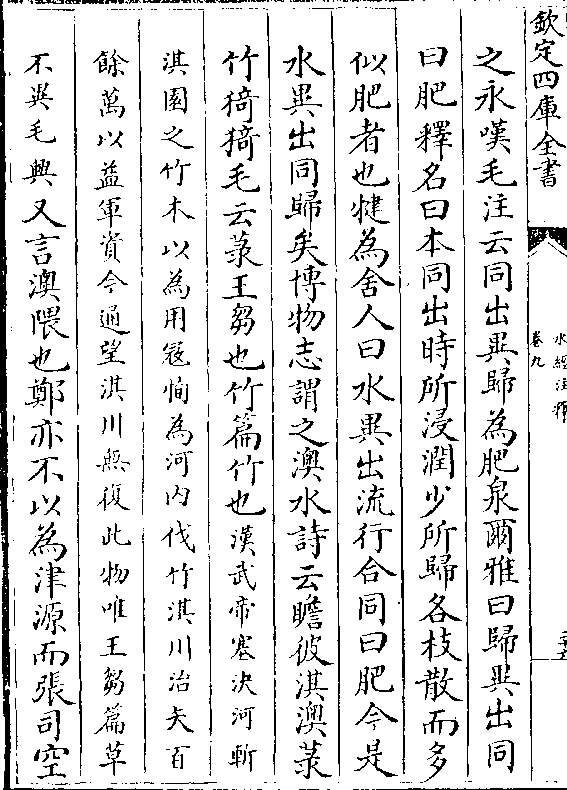 欽定四庫全書
水經注釋
卷九
之永嘆毛注云同出異歸為肥泉爾雅曰歸異出同
曰肥釋名曰本同出時所浸潤少所歸各枝散而多
似肥者也犍為舍人曰水異出流行合同曰肥今是
水異出同歸矣博物志謂之澳水詩云瞻彼淇澳菉
竹猗猗毛云菉王芻也竹篇竹也漢武帝塞決河斬
淇園之竹木以為用寇恂為河内伐竹淇川治矢百
餘萬以益軍資今通望淇川無復此物唯王芻篇草
不異毛興又言澳隈也鄭亦不以為津源而張司空